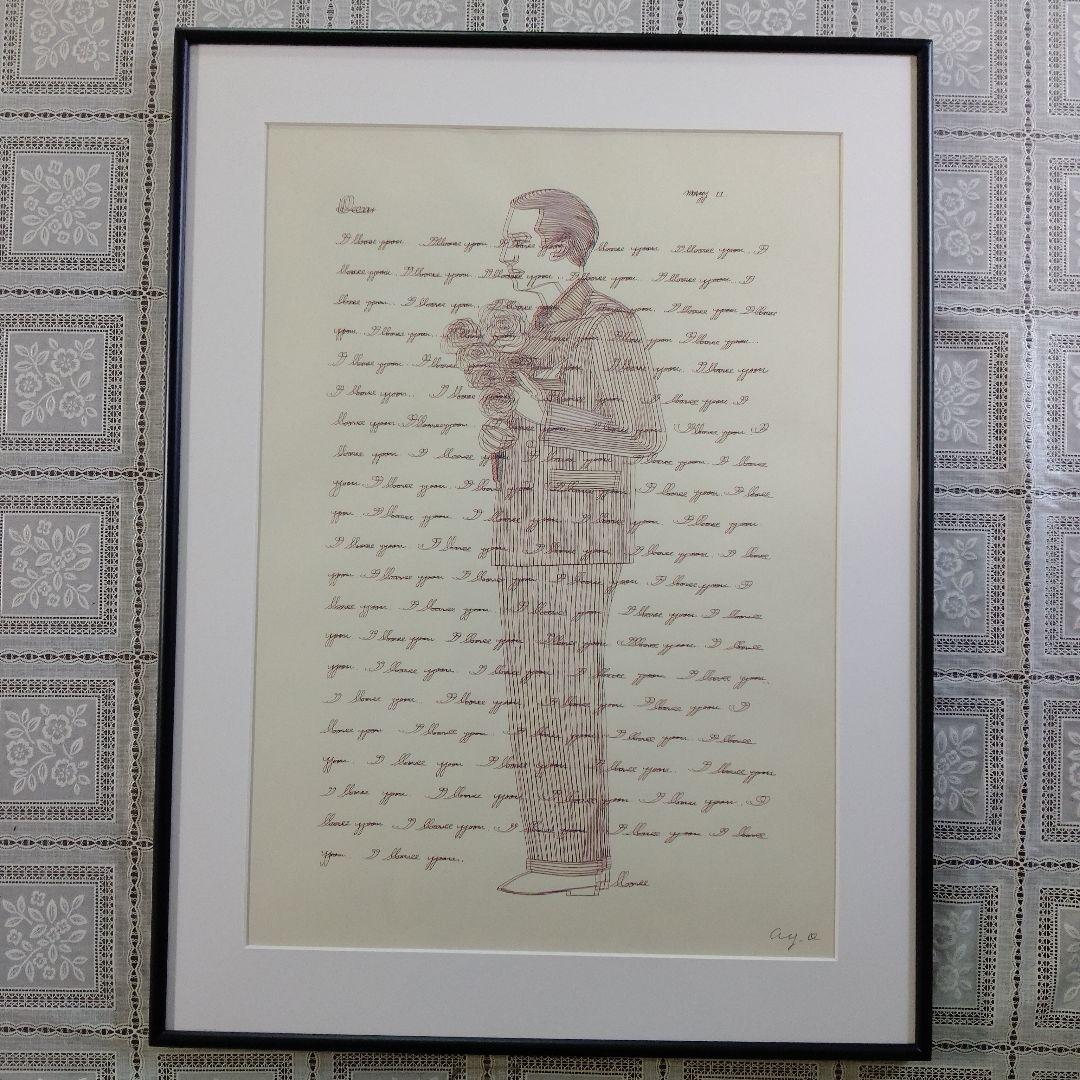 Dear
I love you.. I love you.. I love you. I love you.. I love you.. I
love you.. I love you.. I love you.. I love you.. I love you.. I
love you.. I love you.. I love you.. love you.. I love you I love
you.. I love you.. love you I love you I love you...
I love you.. I love you I love you. I love you
I love you... I love you love you.. I love you. I
love you. I love you love you. I love you. I
love you. I love you I love you. I love you. I love
you.. I love you.. I love you. I love you. I love you. I love
you. I love you. I love you. I love you. I love you.
I love you. I love you. I love you. I love you. I love
you.. I love you. I love you. I love you. I love you. I
love you. I love you. I love you. I love you I love
you.. I love you. I love you. I love you. I love you. I love
you.. I love you. I love you. I love you. I love you..
I love you. I love you. I love you. I love you. I
love you. I love you. I love you. I love you. I love
you.. I love you. I love you. I love you.. I love you
I love you. I love you. I love you. I love you. I
love you. I love you. I love you. I love you. I love
you.. I love you..
love
ay. Q